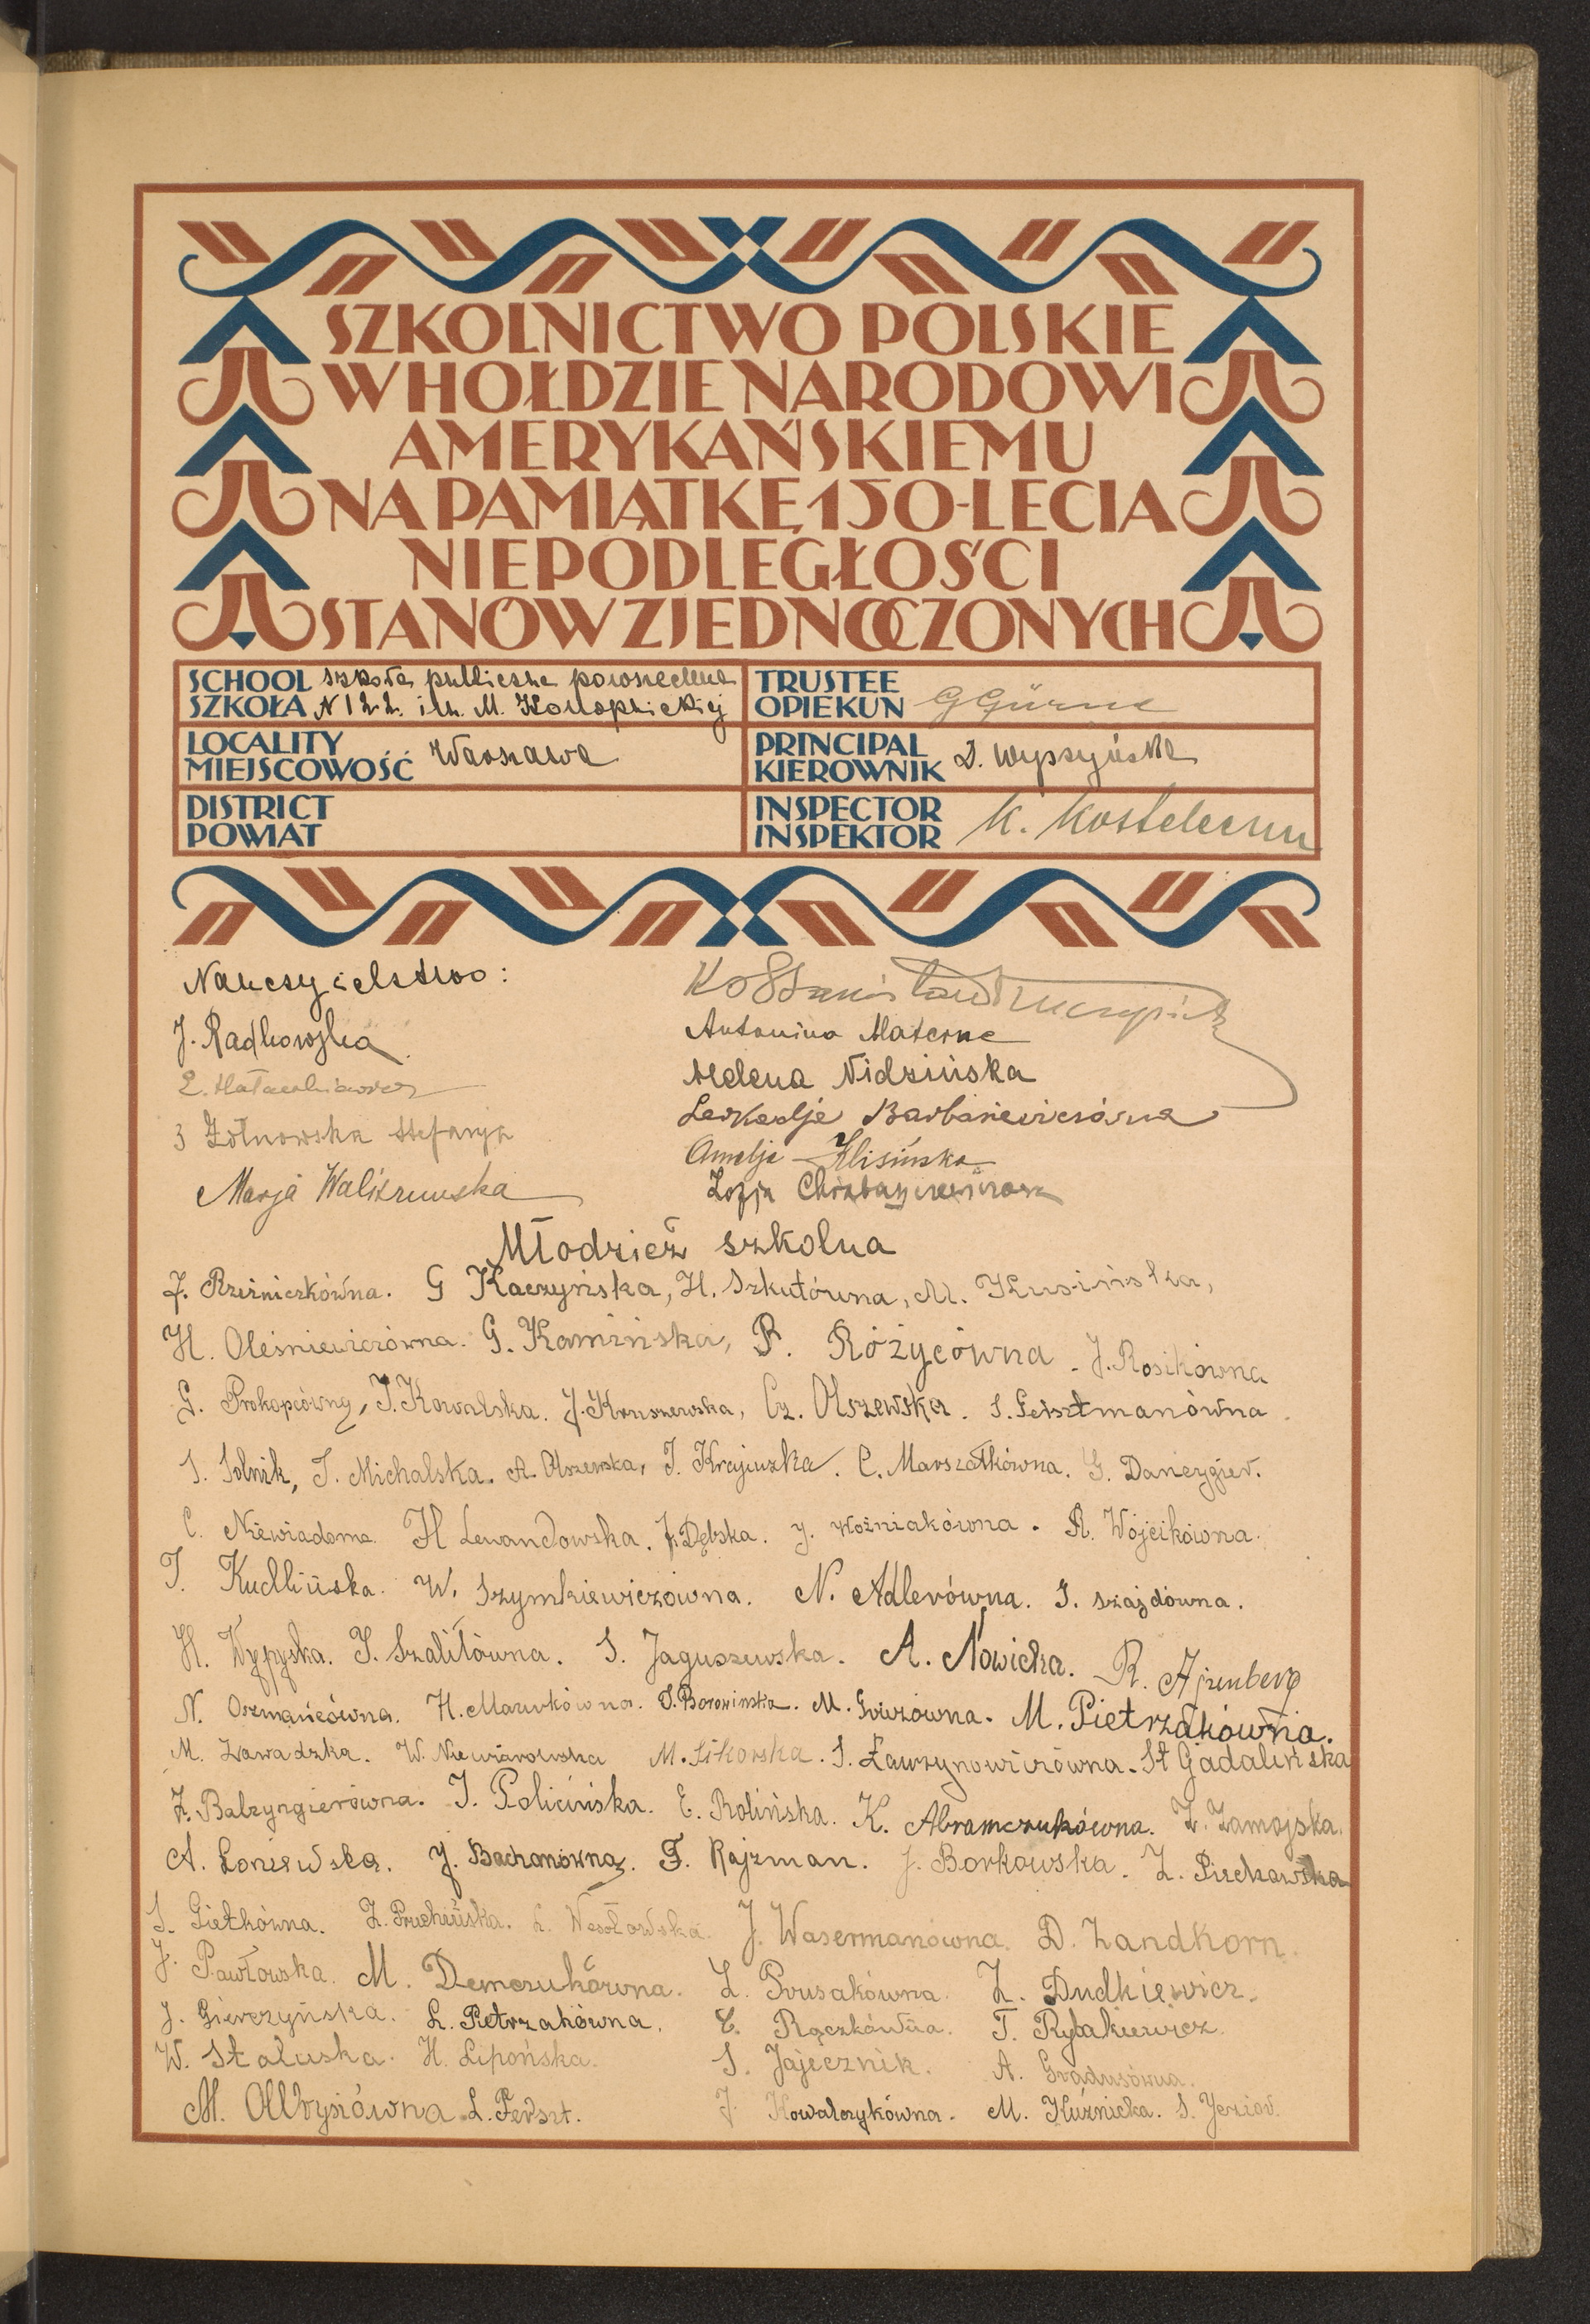 SZKOLNICTWO POLSKIE
W HOŁDZIE NARODOWI
AMERYKAŃSKIEMU
NA PAMIĄTKĘ 150-LECIA
NIEPODLEGŁOŚCI
STANÓW ZJEDNOCZONYCH
SCHOOL szkoła publiczna powszechna
SZKOŁA N 122 im. M. Konopnickiej
TRUSTEE
OPIEKUN
LOCALITY
MIEJSCOWOŚĆ Warszawa
PRINCIPAL
KIEROWNIK D. Wyszyńska
DISTRICT
POWIAT
INSPECTOR
INSPEKTOR K.
Nauczycielstwo:
J. Radkowska
Antonina Materne
Helena Nidzińska
Leokadja Barbasiewiczówna
Żółnowska Stefanja
Amelja Klisińska
Marja Waliszewska
Zofja
Młodzież szkolna
J. Rzeźniczkówna. G Kaczyńska, H. Szkutówna, M. Kusińska,
H. Oleśniewiczówna. G. Kamińska, R. Różycówna. J. Rosikówna
G. Prokopiówny, J. Kowalska. J. Kruszewska, Cz. Olszewska. S. Fersztmanówna.
S. Solnik, J. Michalska. A. Olszewska, J. Krajewska. C. Marszałkówna. G. Dancygier.
C. Niewiadoma. H Lewandowska. J. Dębska. J. Woźniakówna. R. Wójcikówna.
J. Kudlińska. W. Szymkiewiczówna. N. Adlerówna. J. Szajdówna.
H. Wypyska. J. Szalitówna. S. Jaguszewska. A. Nowicka. R. Ajzenberg
N. Oszmańcówna. H. Mazurkówna. J. Borowinska. M. M. Pietrzakówna.
M. Zawadzka. W. Niewiarowska M. Sikorska. S. Ławrzynowiczówna. St Gadalińska
Z. Balzyngierówna. J. Policińska. E. Rolińska. K. Abramczukówna. Z. Zamojska.
A. Łoniewska. J. Bachanówna. F. Rajzman. J. Borkowska. Z. Piekarska
S. Gietkówna. Z. Pruchińska. L. Wesołowska. J. Wasermanówna. D. Zandkorn.
J. Pawłowska. M. Demczukówna. Z. Prusakówna. Z. Dudkiewicz.
J. Gierczyńska. L. Pietrzakówna. C. Rączkówna. T. Rybakiewicz.
W. Staluska. H. Lipońska. S. Jajecznik. A. Gradusówna.
M. Ołtrysiówna L. Ferszt. J. Kowalczykówna. M. Kuźnicka. S. Jezior.